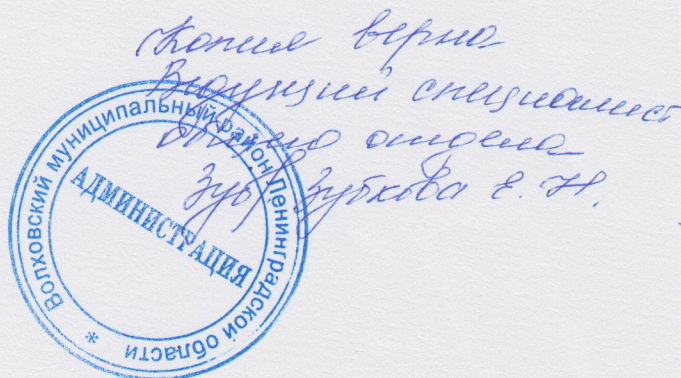 Копия верна
Ведущий специалист
общего отдела
Зуб/ Зубкова Е. Н.
Волховский муниципальный район Ленинградской области *
АДМИНИСТРАЦИЯ